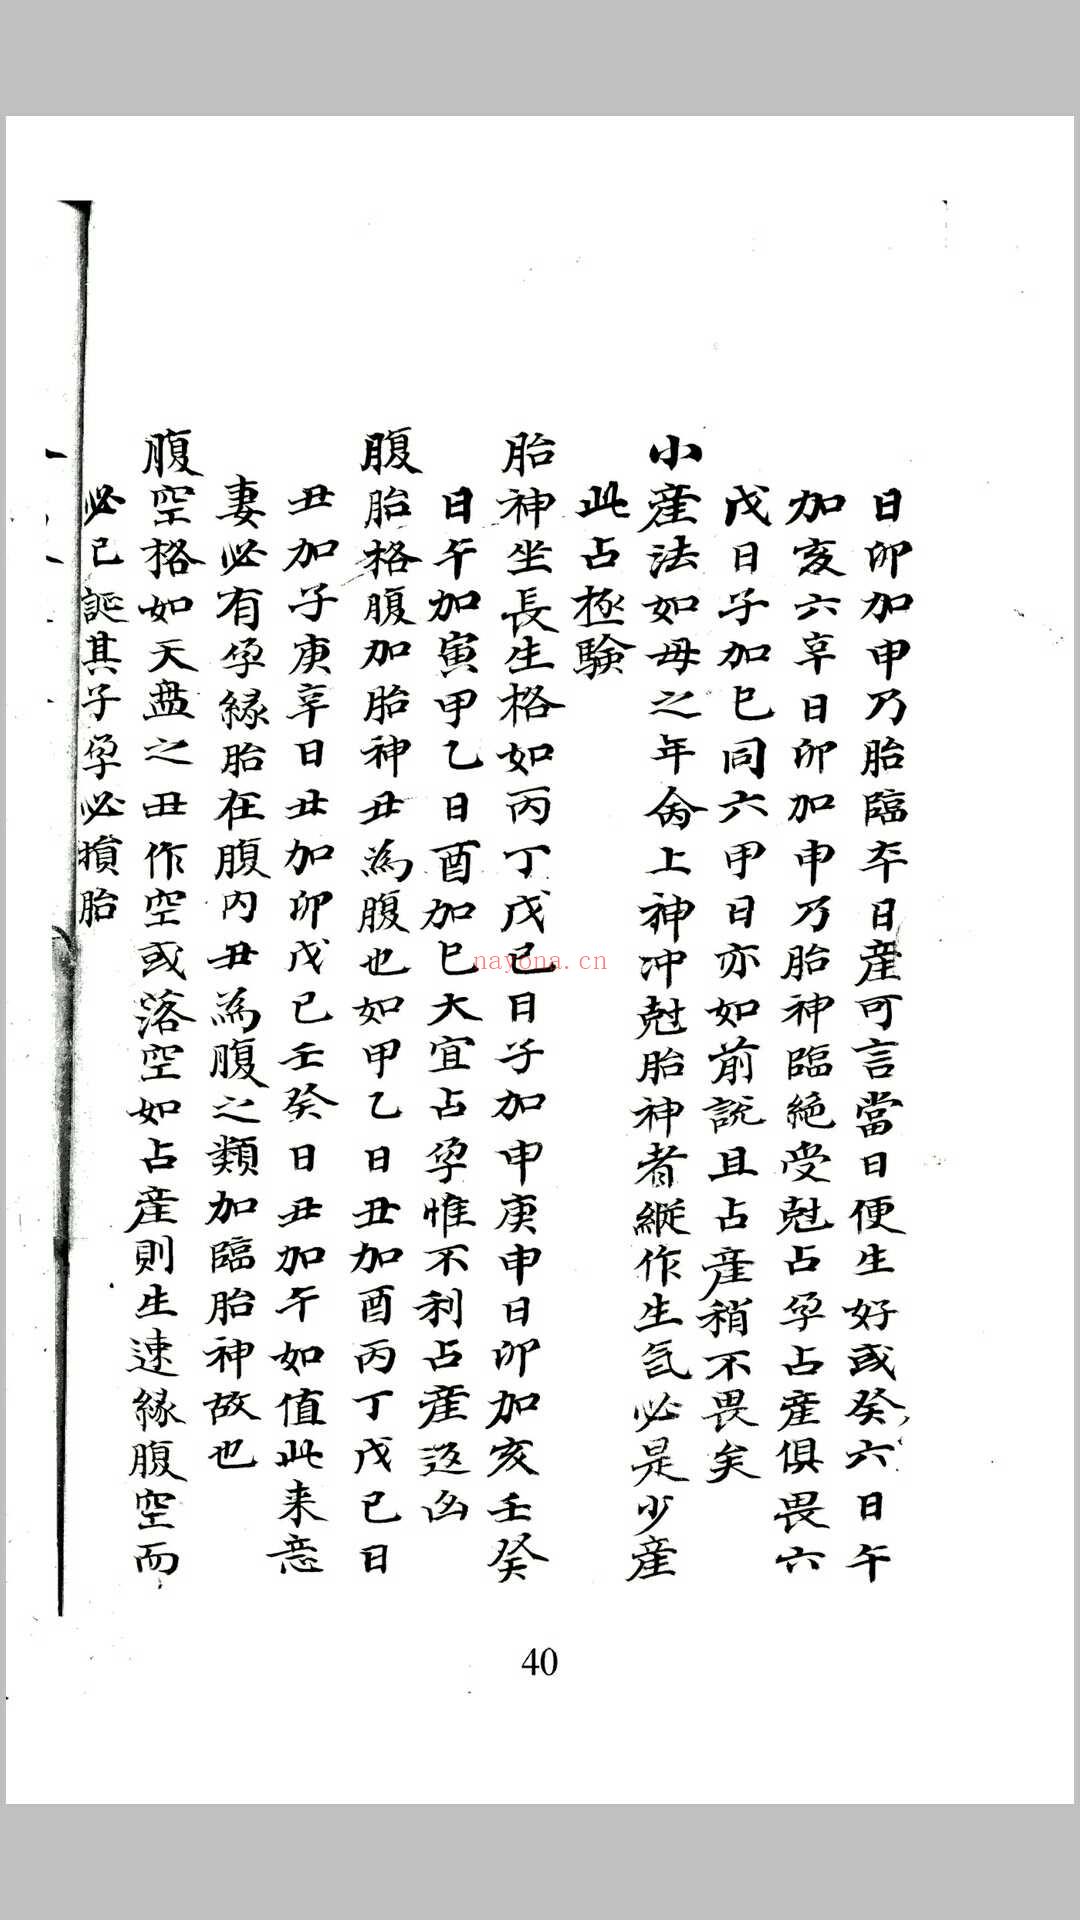 日卯加申乃胎臨夲日産可言當日便生好或癸六日午
加亥六辛日卯加申乃胎神臨絶受尅占孕占産俱畏六
戊日子加巳同六甲日亦如前説且占産稍不畏矣
小産法如母之年命上神冲尅胎神者縱作生氣必是少産
此占極驗
胎神坐長生格如丙丁戊己日子加申庚申日卯加亥壬癸
日午加寅甲乙日酉加巳大宜占孕惟不利占産返凶
腹胎格腹加胎神丑為腹也如甲乙日丑加酉丙丁戊己日
丑加子庚辛日丑加卯戊己壬癸日丑加午如值此来意
妻必有孕緣胎在腹内丑為腹之類加臨胎神故也
腹空格如天盘之丑作空或落空如占産則生速緣腹空而
必已誕其子孕必損胎
nayona.cn
40